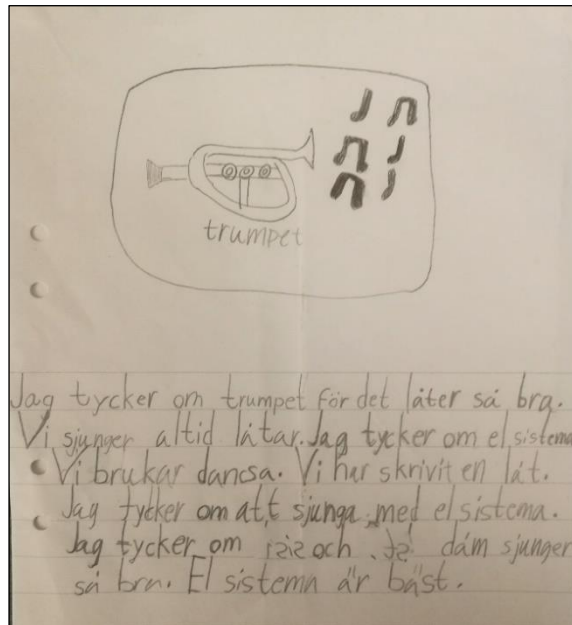 trumpet
Jag tycker om trumpet för det låter så bra.
Vi sjunger altid låtar. Jag tycker om el sistema
Vi brukar dancsa. Vi har skrivit en låt.
Jag tycker om att sjunga med el sistema.
Jag tycker om och dåm sjunger
så bra. El sistema är bäst.